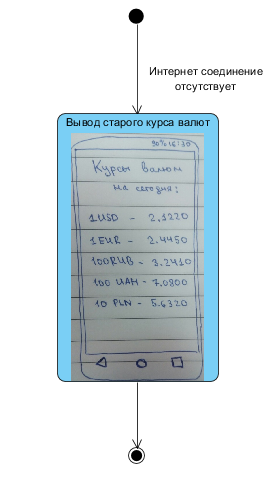 Интернет соединение
отсутствует
Вывод старого курса валют
90% 16:30
Курсы валют
на сегодня:
1 USD - 2,1220
1 EUR - 2.4450
100 RUB - 3.2410
100 UAH - 7.0800
10 PLN - 5.6320